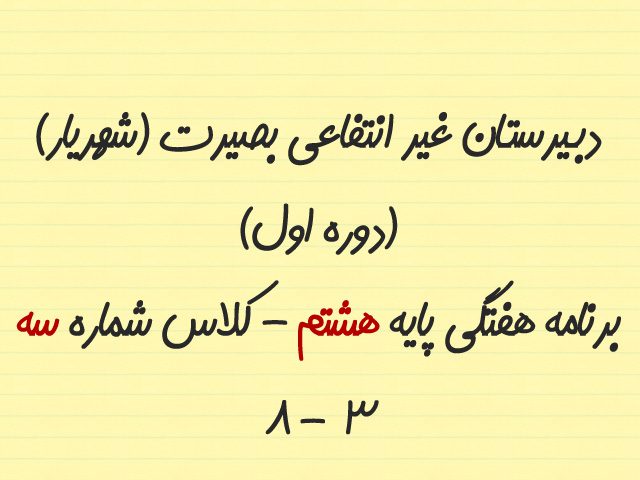 دبیرستان غیر انتفاعی بصیرت (شهریار)
(دوره اول)
برنامه هفتگی پایه هشتم - کلاس شماره سه
۳ - ۸